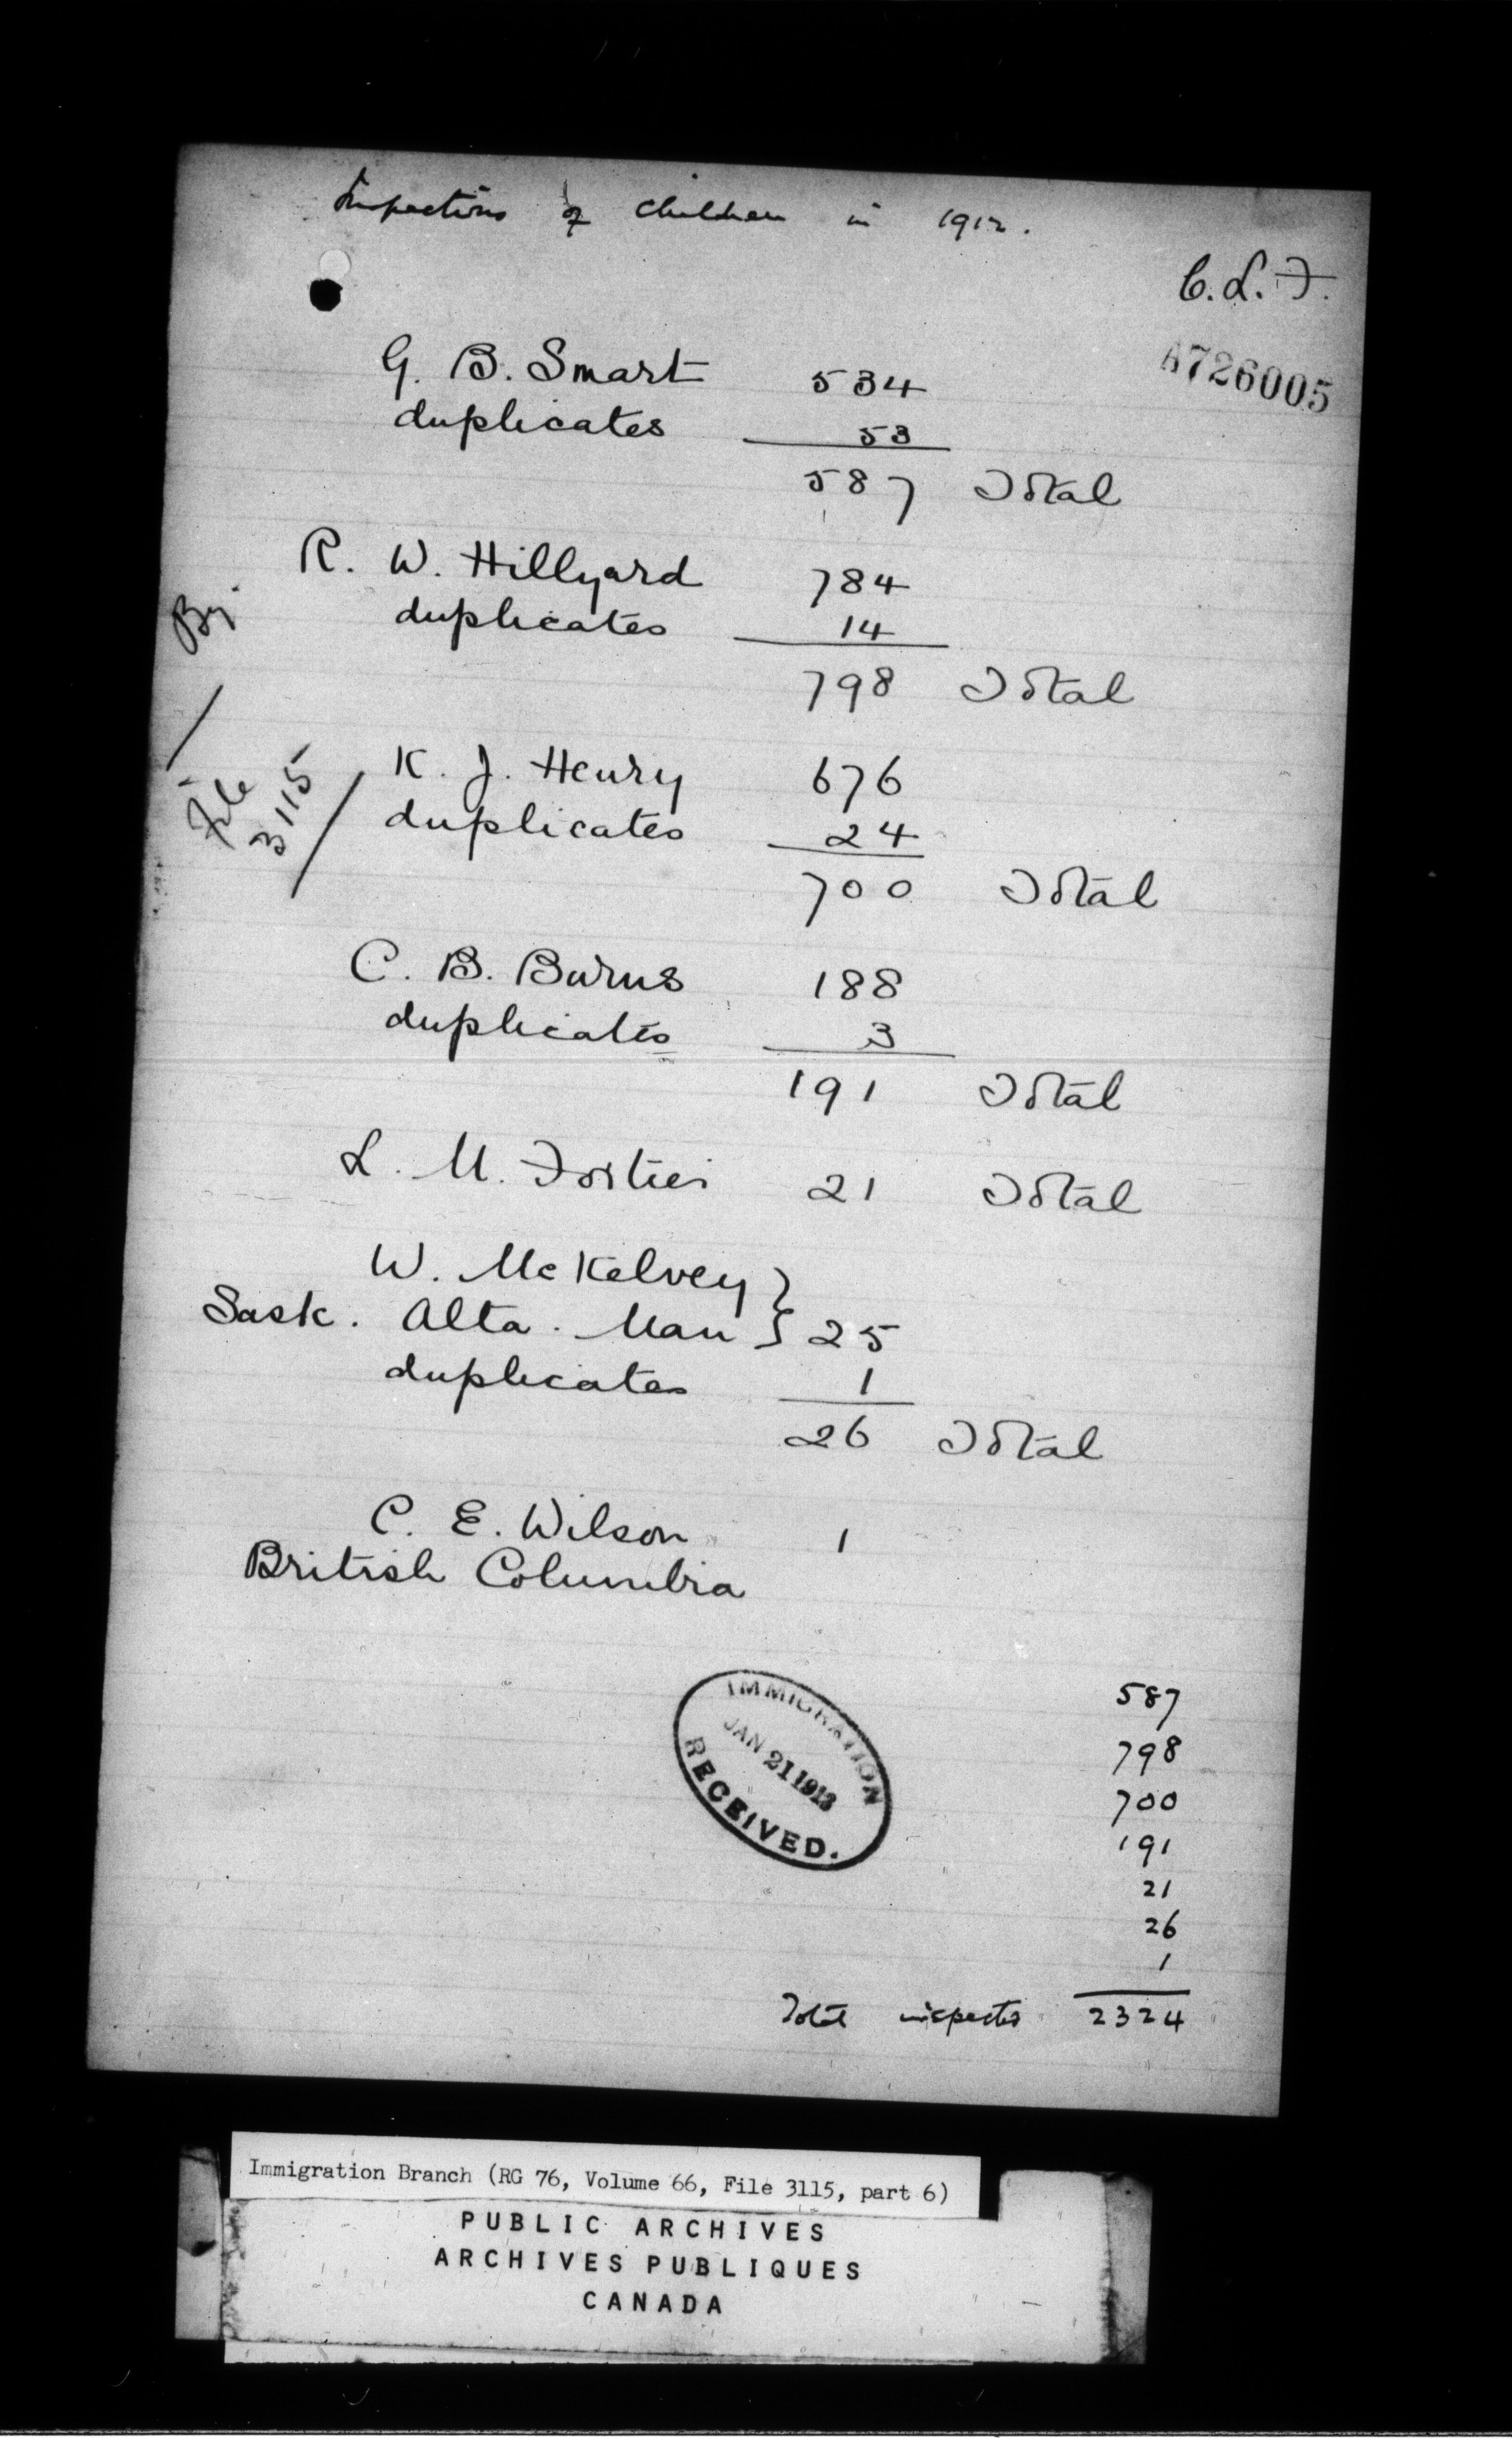 Inspections of Children in 1912.
C.L.F.
A726005
G. B. Smart 534
duplicates 53
587 Total
R. W. Hillyard 784
duplicates 14
798 Total
By.
File
3115
K. J. Henry 676
duplicates 24
700 Total
C. B. Burns 188
duplicates 3
191 Total
L. M. Fortier 21 Total
W. McKelvey }
Sask. Alta. Man } 25
duplicates 1
26 Total
C. E. Wilson 1
British Columbia
IMMIGRATION
JAN 21 1913
RECEIVED.
587
798
700
191
21
26
1
Total inspected 2324
Immigration Branch (RG 76, Volume 66, File 3115, part 6)
PUBLIC ARCHIVES
ARCHIVES PUBLIQUES
CANADA